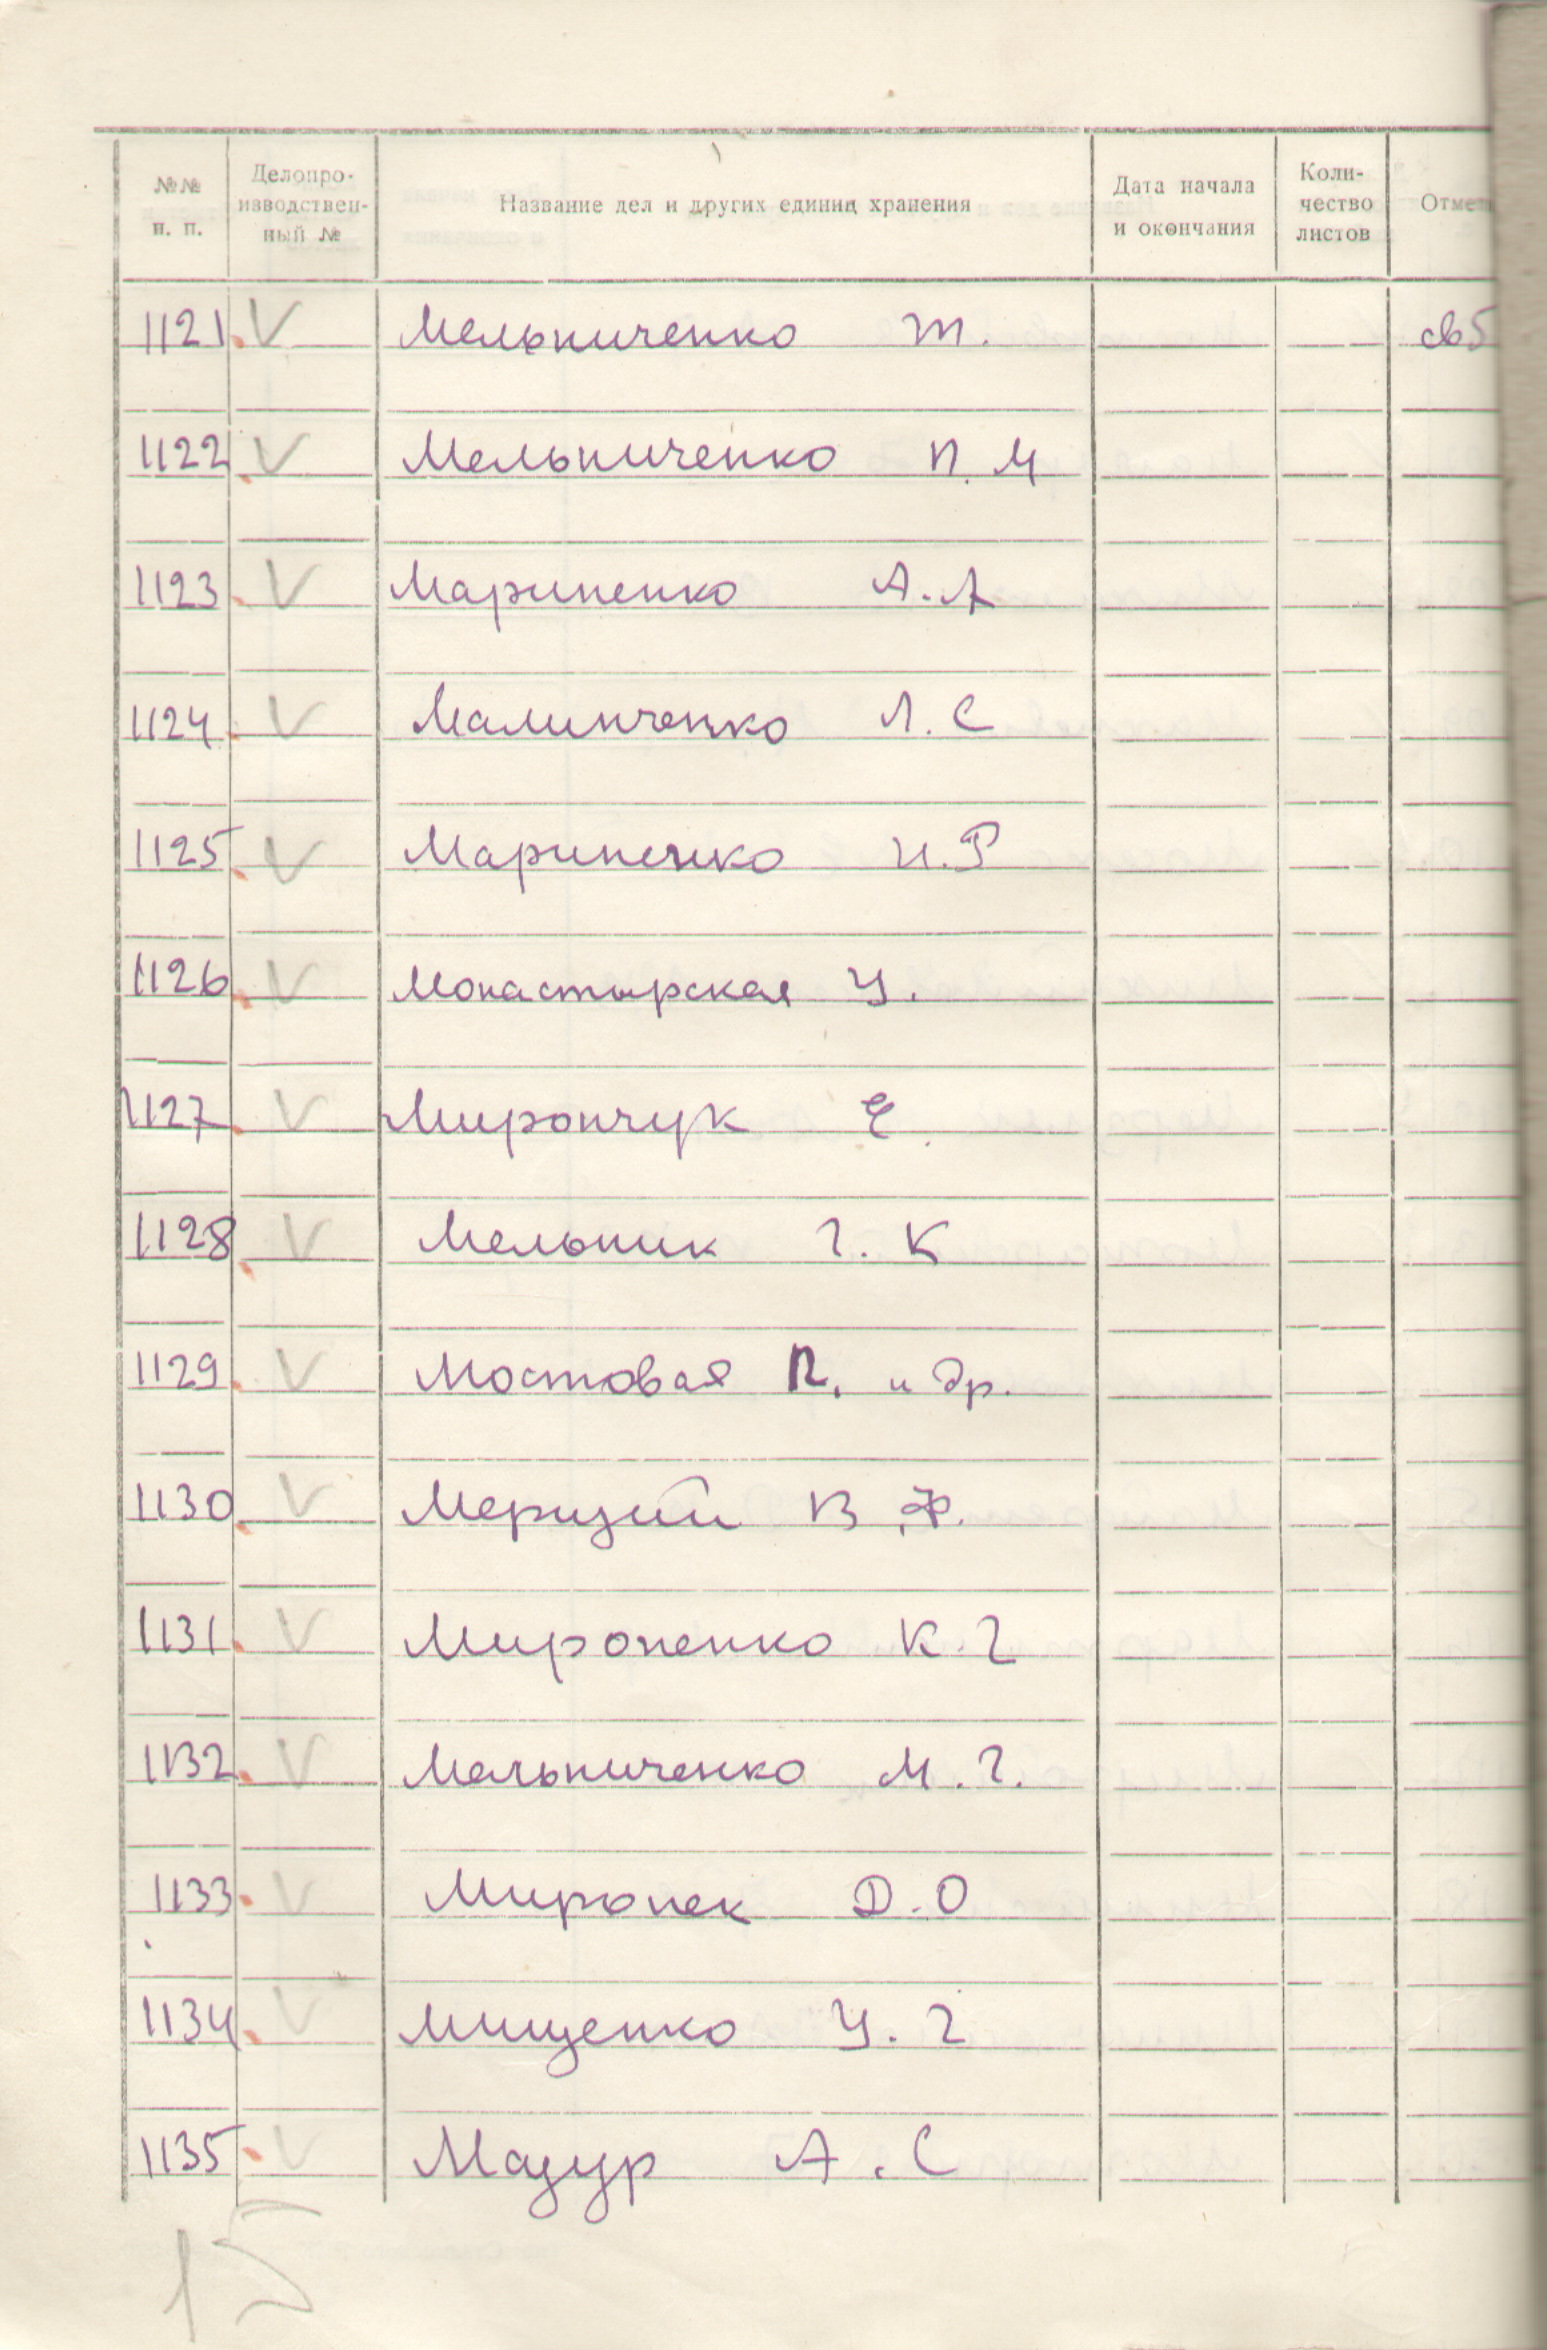 №№ п. п. Делопроизводственный № Название дел и других единиц хранения Дата начала и окончания Количество листов Отмет
1121. V Мельниченко Т. св5
1122. V Мельниченко П. М
1123. V Мариненко А. А
1124. V Малинченко Л. С
1125. V Мариненко И. Р
1126. V Монастырская У.
1127. V Мирончук Е.
1128. V Мельник Г. К
1129. V Мостовая П. и др.
1130. V Мерзуш В. Ф.
1131. V Мироненко К. Г
1132. V Мельниченко М. Г.
1133. V Миронек Д. О
1134. V Мищенко У. Г
1135. V Мазур А. С
15